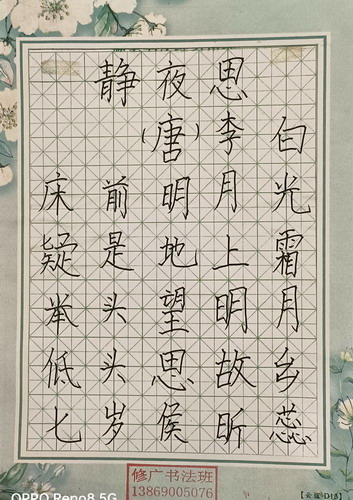 静夜思
(唐)李白
床前明月光
疑是地上霜
举头望明月
低头思故乡
七岁侯昕蕊
修广书法班
13869005076
OPPO Reno8 5G